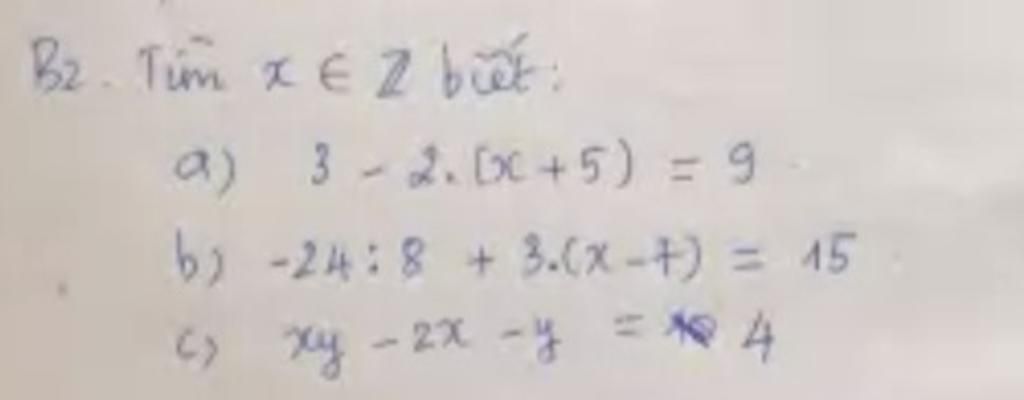 B2. Tìm x ∈ ℤ biết:
a) 3 - 2.(x+5) = 9
b) -24 : 8 + 3.(x-7) = 15
c) xy - 2x - y = 4